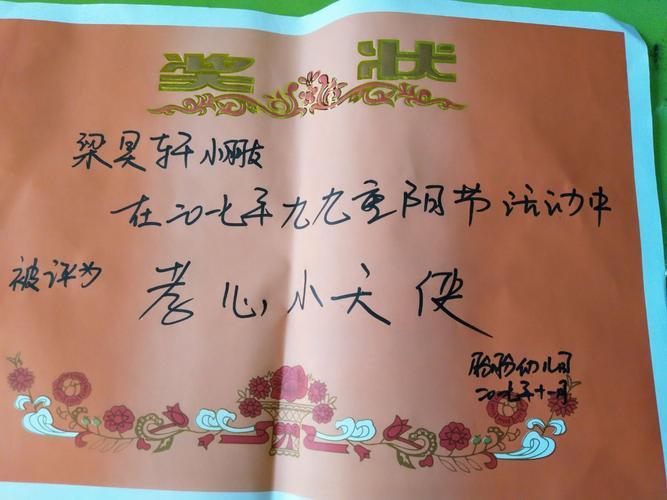 奖状
梁昊轩小朋友
在二〇一七年九九重阳节活动中
被评为 孝心小天使
盼盼幼儿园
二〇一七年十一月